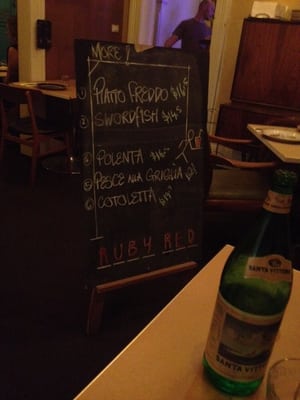 MORE!
① PIATTO FREDDO
② SWORDFISH
④ POLENTA
⑤ PESCE ALLA GRIGLIA
⑥ COTOLETTA
RUBY RED
SANTA VITTORIA
SANTA VITTORIA